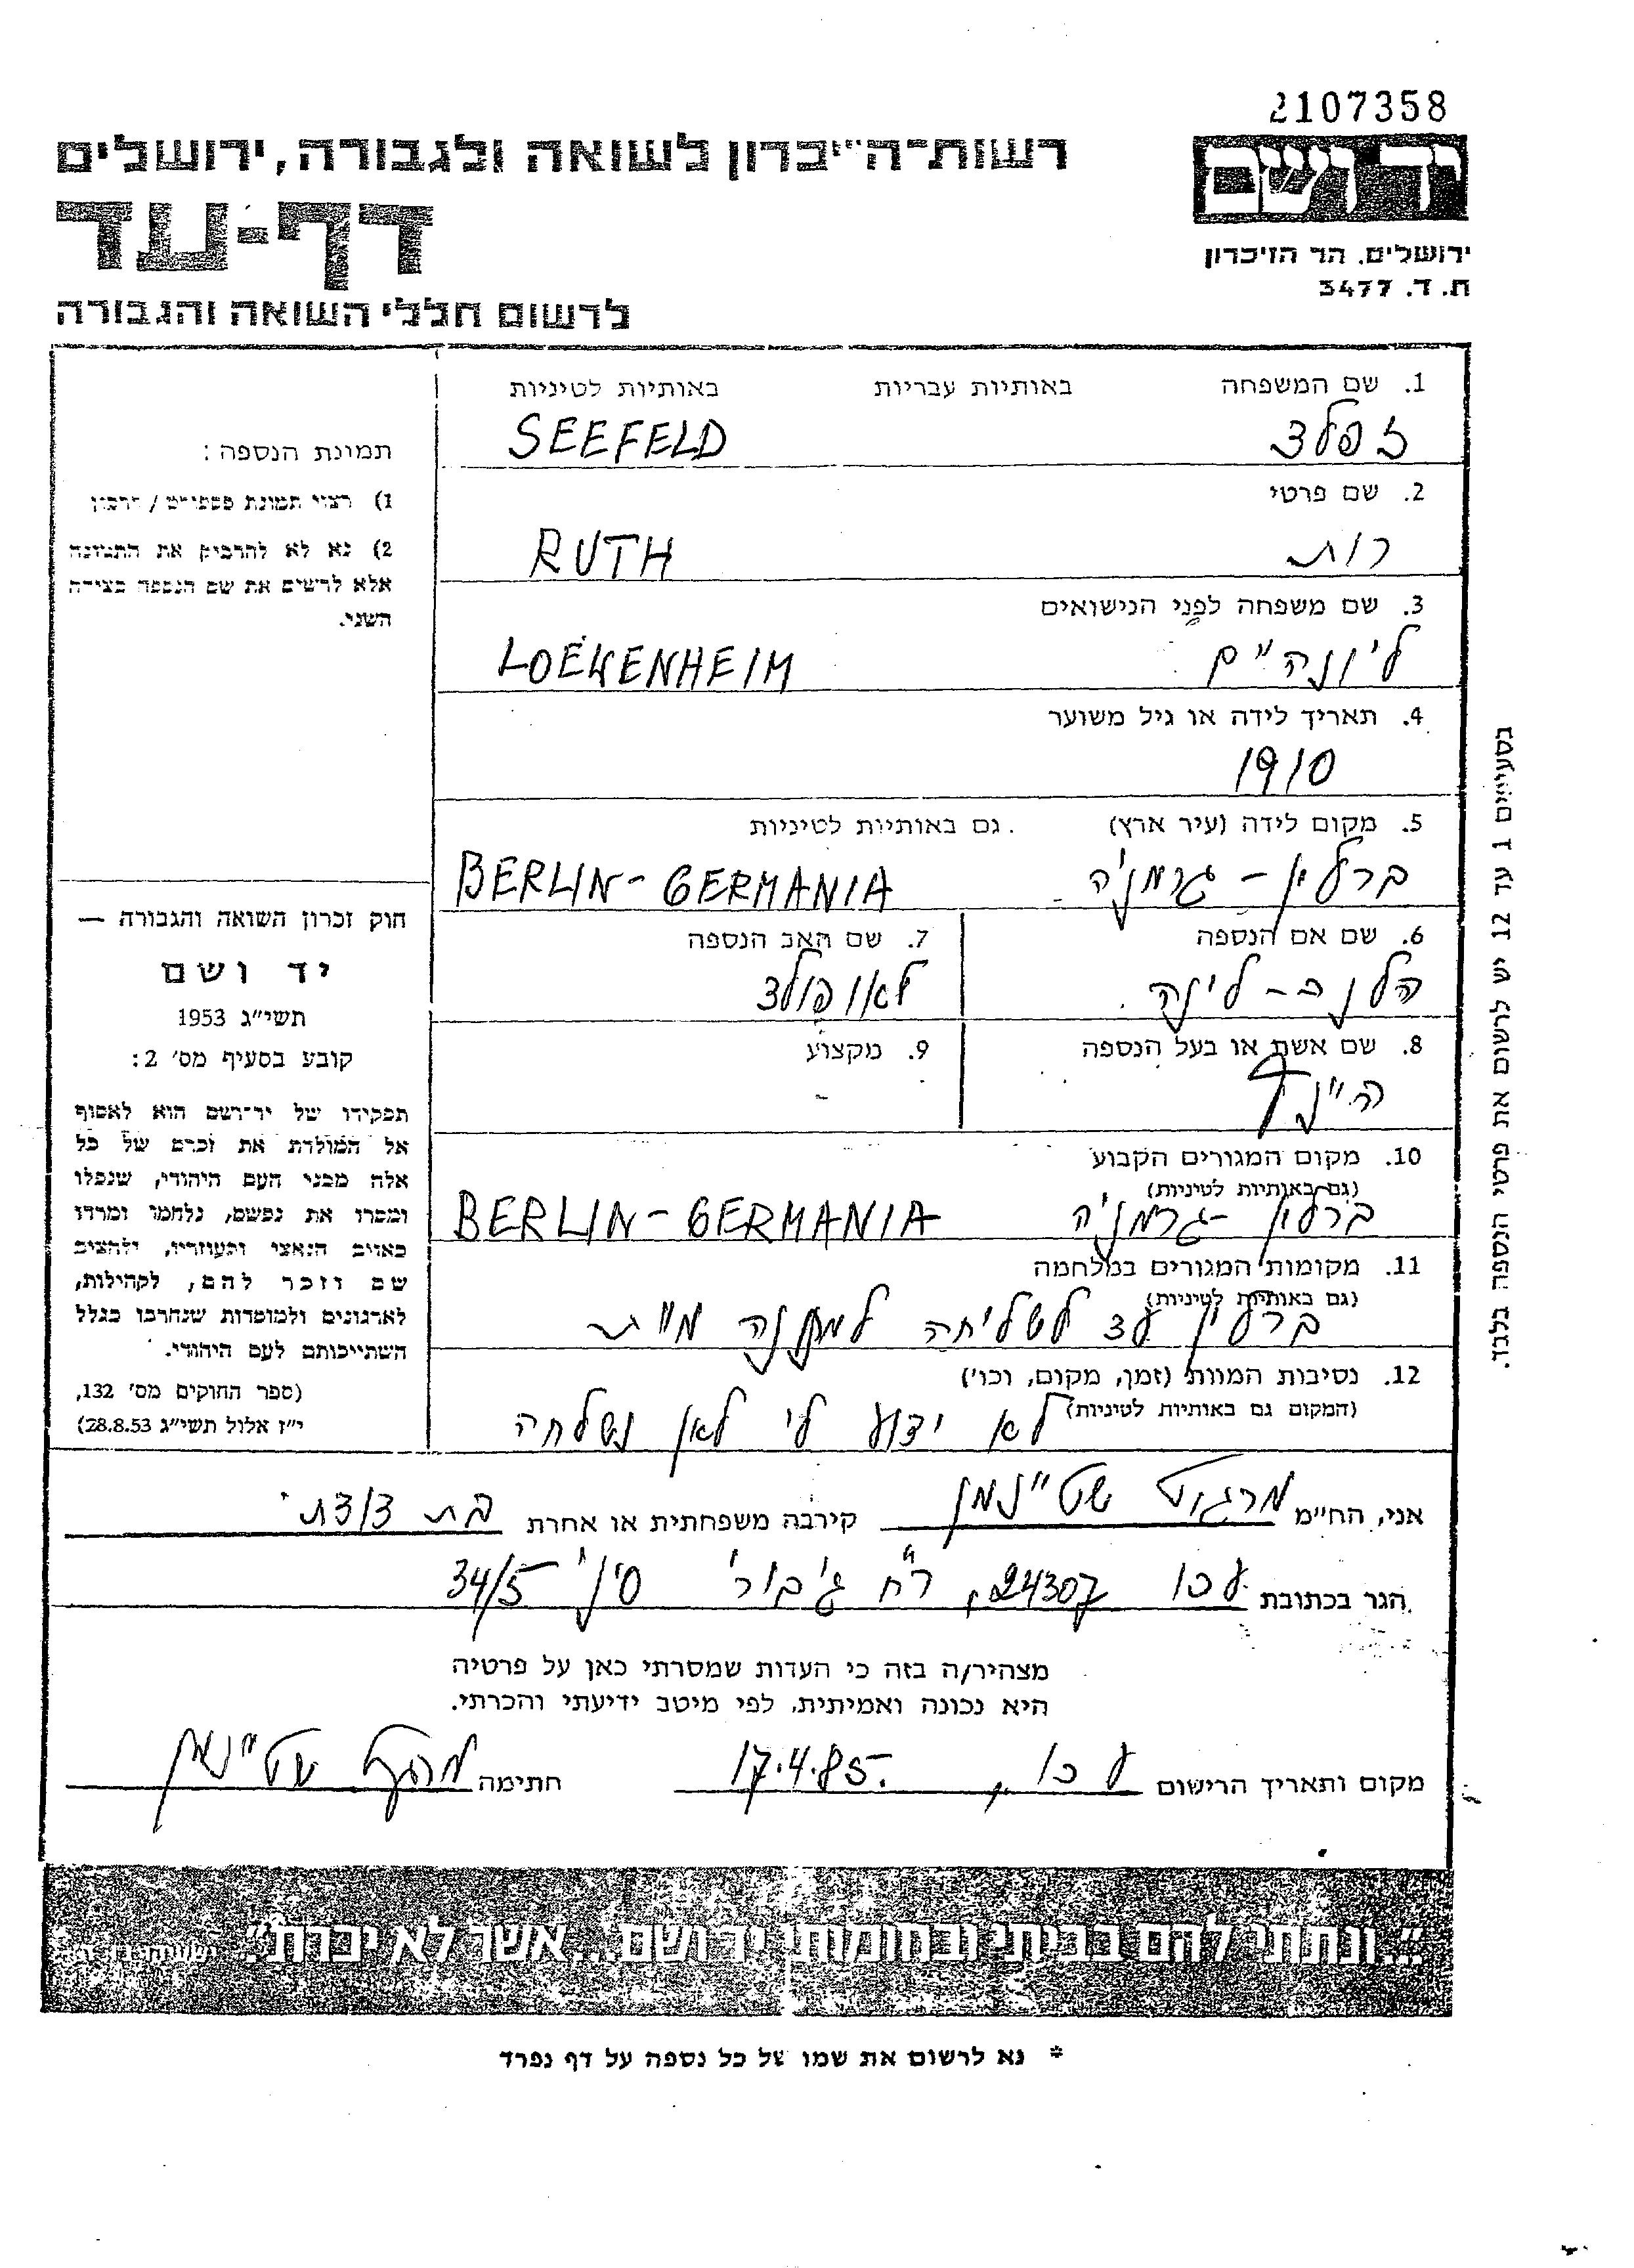 2107358
יד ושם
רשות־הזיכרון לשואה ולגבורה, ירושלים
דף-עד
ירושלים. הר הזיכרון
ת. ד. 3477
לרשום חללי השואה והגבורה
1. שם המשפחה באותיות עבריות באותיות לטיניות
זפלד SEEFELD
2. שם פרטי
רות RUTH
3. שם משפחה לפני הנישואים
LOEWENHEIM
4. תאריך לידה או גיל משוער
1910
5. מקום לידה (עיר ארץ) גם באותיות לטיניות
ברלין – גרמניה BERLIN - GERMANIA
6. שם אם הנספה 7. שם האב הנספה
לינה לאופולד
8. שם אשת או בעל הנספה 9. מקצוע
10. מקום המגורים הקבוע
(גם באותיות לטיניות)
ברלין - גרמניה BERLIN - GERMANIA
11. מקומות המגורים במלחמה
(גם באותיות לטיניות)
ברלין עד לשליחה למחנה
12. נסיבות המוות (זמן, מקום, וכו')
(המקום גם באותיות לטיניות)
לא ידוע לי לאן נשלחה
תמונת הנספה:
1) רצוי תמונת פספורט / דרכון
2) נא לא להדביק את התמונה
אלא לרשים את שם הנספה בצידה
השני.
חוק זכרון השואה והגבורה —
יד ושם
תשי״ג 1953
קובע בסעיף מס׳ 2:
תפקידו של יד־ושם הוא לאסוף
אל המולדת את זכרם של כל
אלה מבני העם היהודי, שנפלו
ומסרו את נפשם, נלחמו ומרדו
באויב הנאצי ובעוזריו, ולהציב
שם וזכר להם, לקהילות,
לארגונים ולמוסדות שנחרבו בגלל
השתייכותם לעם היהודי.
(ספר החוקים מס׳ 132,
י״ז אלול תשי״ג 28.8.53)
בסעיפים 1 עד 12 יש לרשום את פרטי הנספה בלבד.
אני, הח״מ מרגוט שטיינמן קירבה משפחתית או אחרת בת דודת
הגר בכתובת עכו 24307, רח׳ גיבורי סיני 34/5
מצהיר/ה בזה כי העדות שמסרתי כאן על פרטיה
היא נכונה ואמיתית, לפי מיטב ידיעתי והכרתי.
מקום ותאריך הרישום עכו, 17.4.85. חתימה מרגוט שטיינמן
״...ונתתי להם בביתי ובחומותי יד ושם...אשר לא יכרת״.
* נא לרשום את שמו של כל נספה על דף נפרד